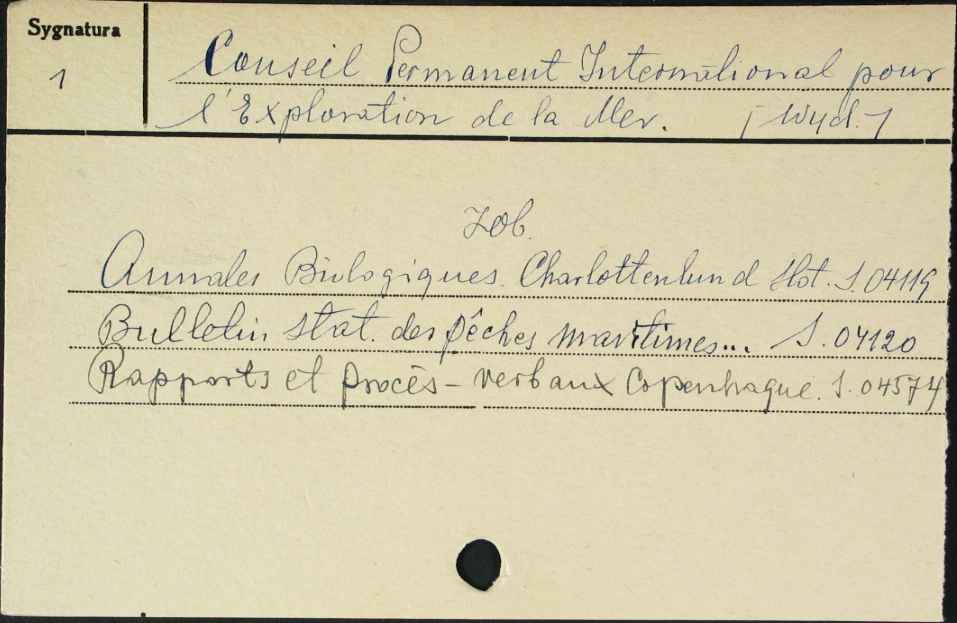 Sygnatura
1
Conseil Permanent International pour
l'Exploration de la Mer. [Wyd.]
Zob.
Annales Biologiques. Charlottenlund Slot. S. 04119
Bulletin stat. des pêches maritimes... S. 04120
Rapports et procès-verbaux Copenhague. S. 04574